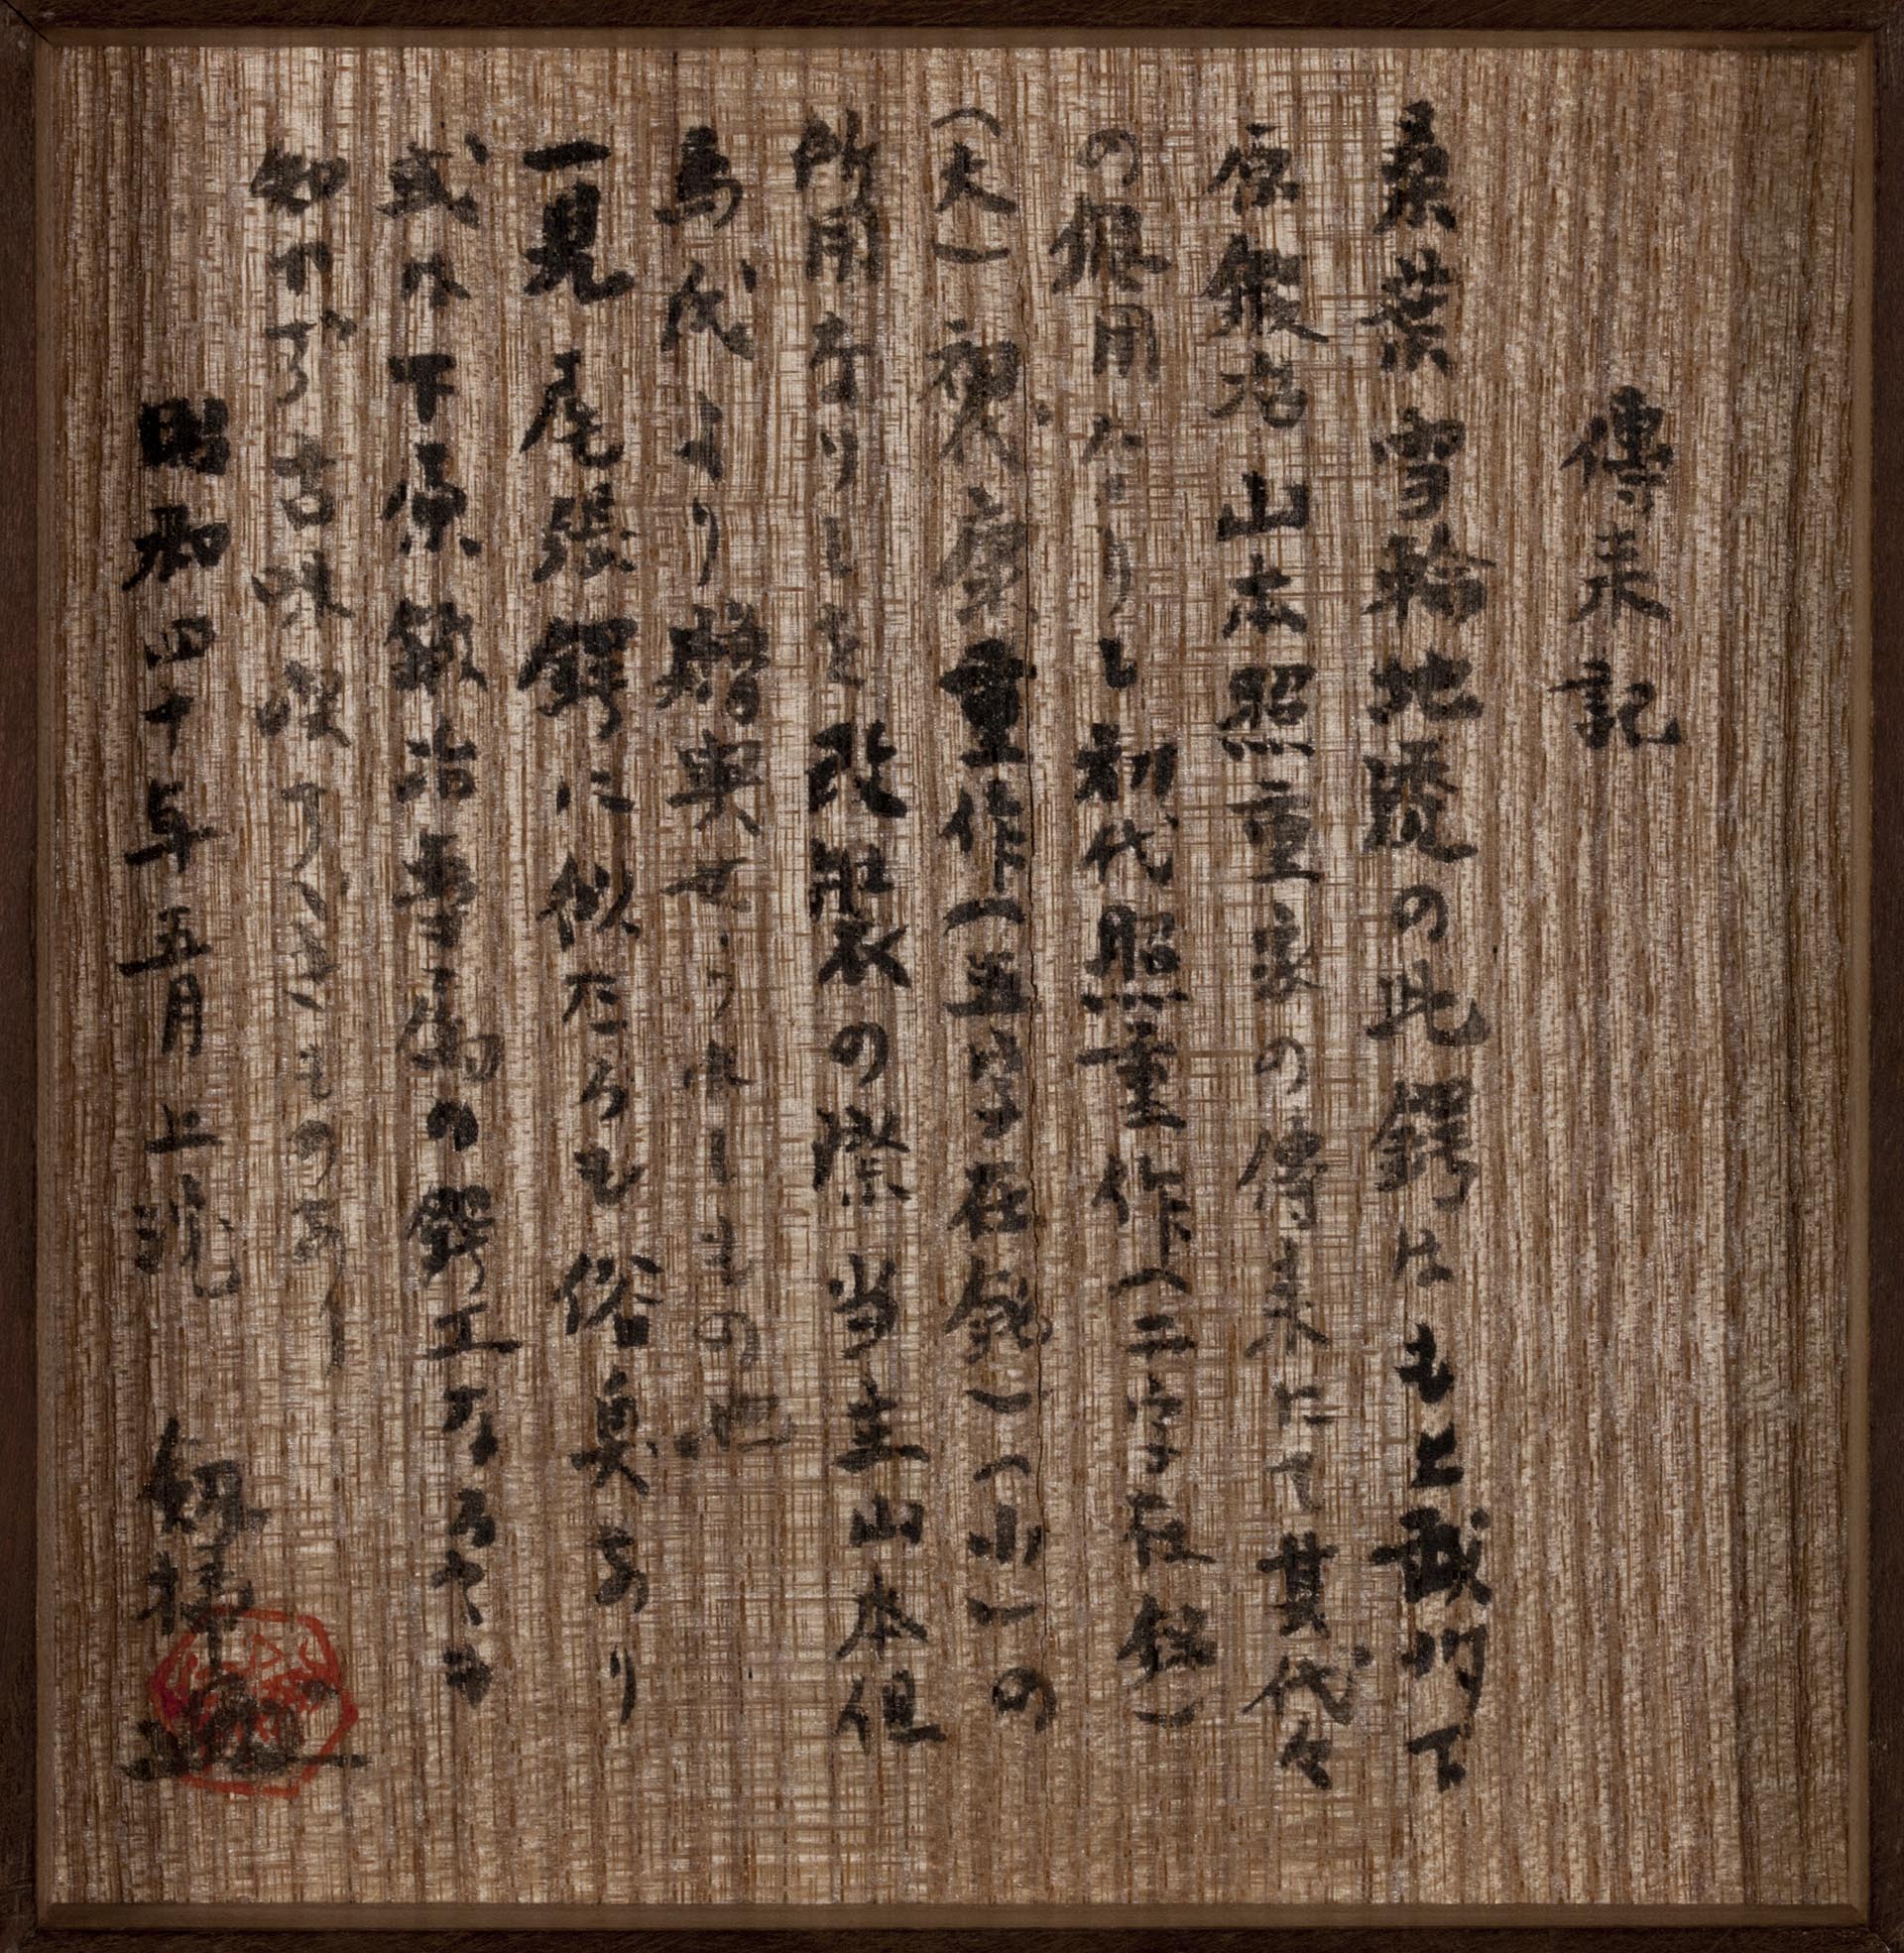 傳来記
桑葉雪輪地透の此鍔はも上武州下
原鍛冶山本照重家の傳来にて其代々
の佩用たりし初代照重作(二字在銘)
(大)初代康重作(五字在銘)(小)の
所用なりしを改装の際当主山本但
馬氏より贈與せられしもの也
一見尾張鍔に似たるも俗臭あり
或は下原鍛冶専属の鍔工なるやも
知れず吉味喫すべきものあり
昭和四十年五月上浣